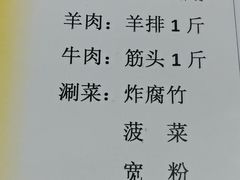 羊肉：羊排 1 斤
牛肉：筋头 1 斤
涮菜：炸腐竹
菠 菜
宽 粉